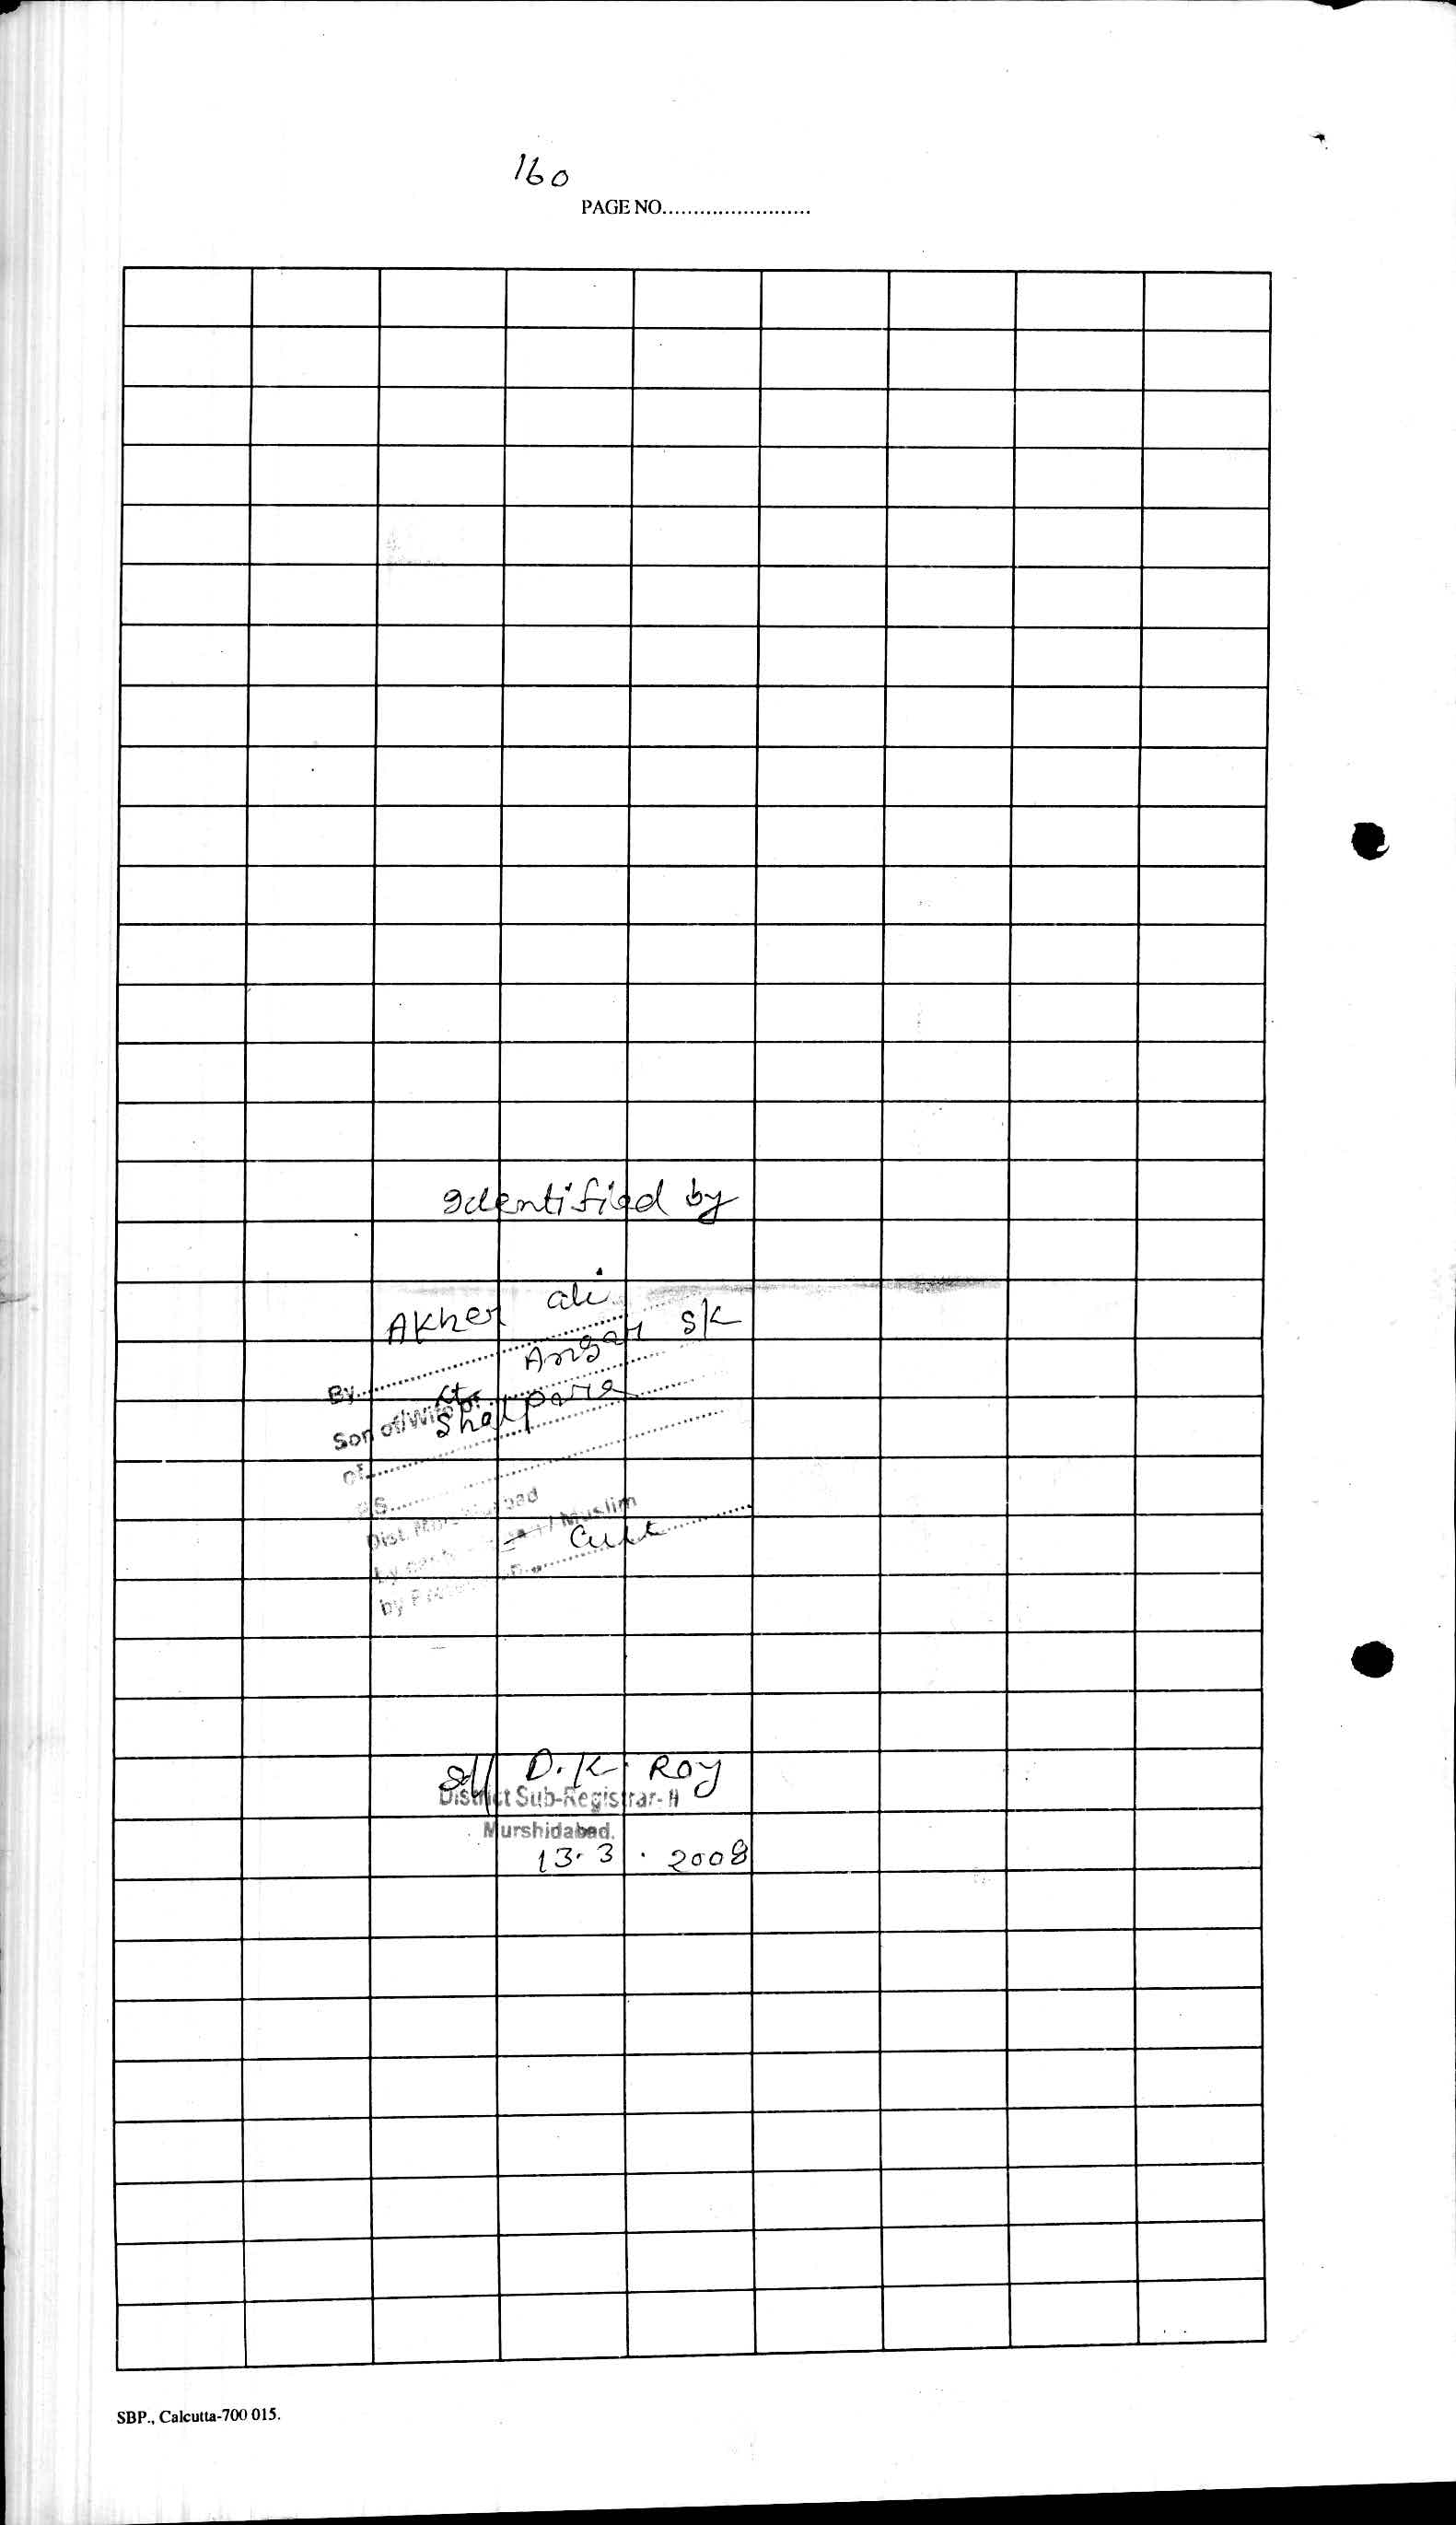 160
PAGE NO.........................
Identified by
Akher ali
By.................... Angar SK
Son of/Wife of
of.......... Shalpara
P.S..........
Dist. Murshidabad
by caste / Muslim
by Profession.......... Cult
Sd/ D. K. Roy
District Sub-Registrar-II
Murshidabad.
13.3.2008
SBP., Calcutta-700 015.